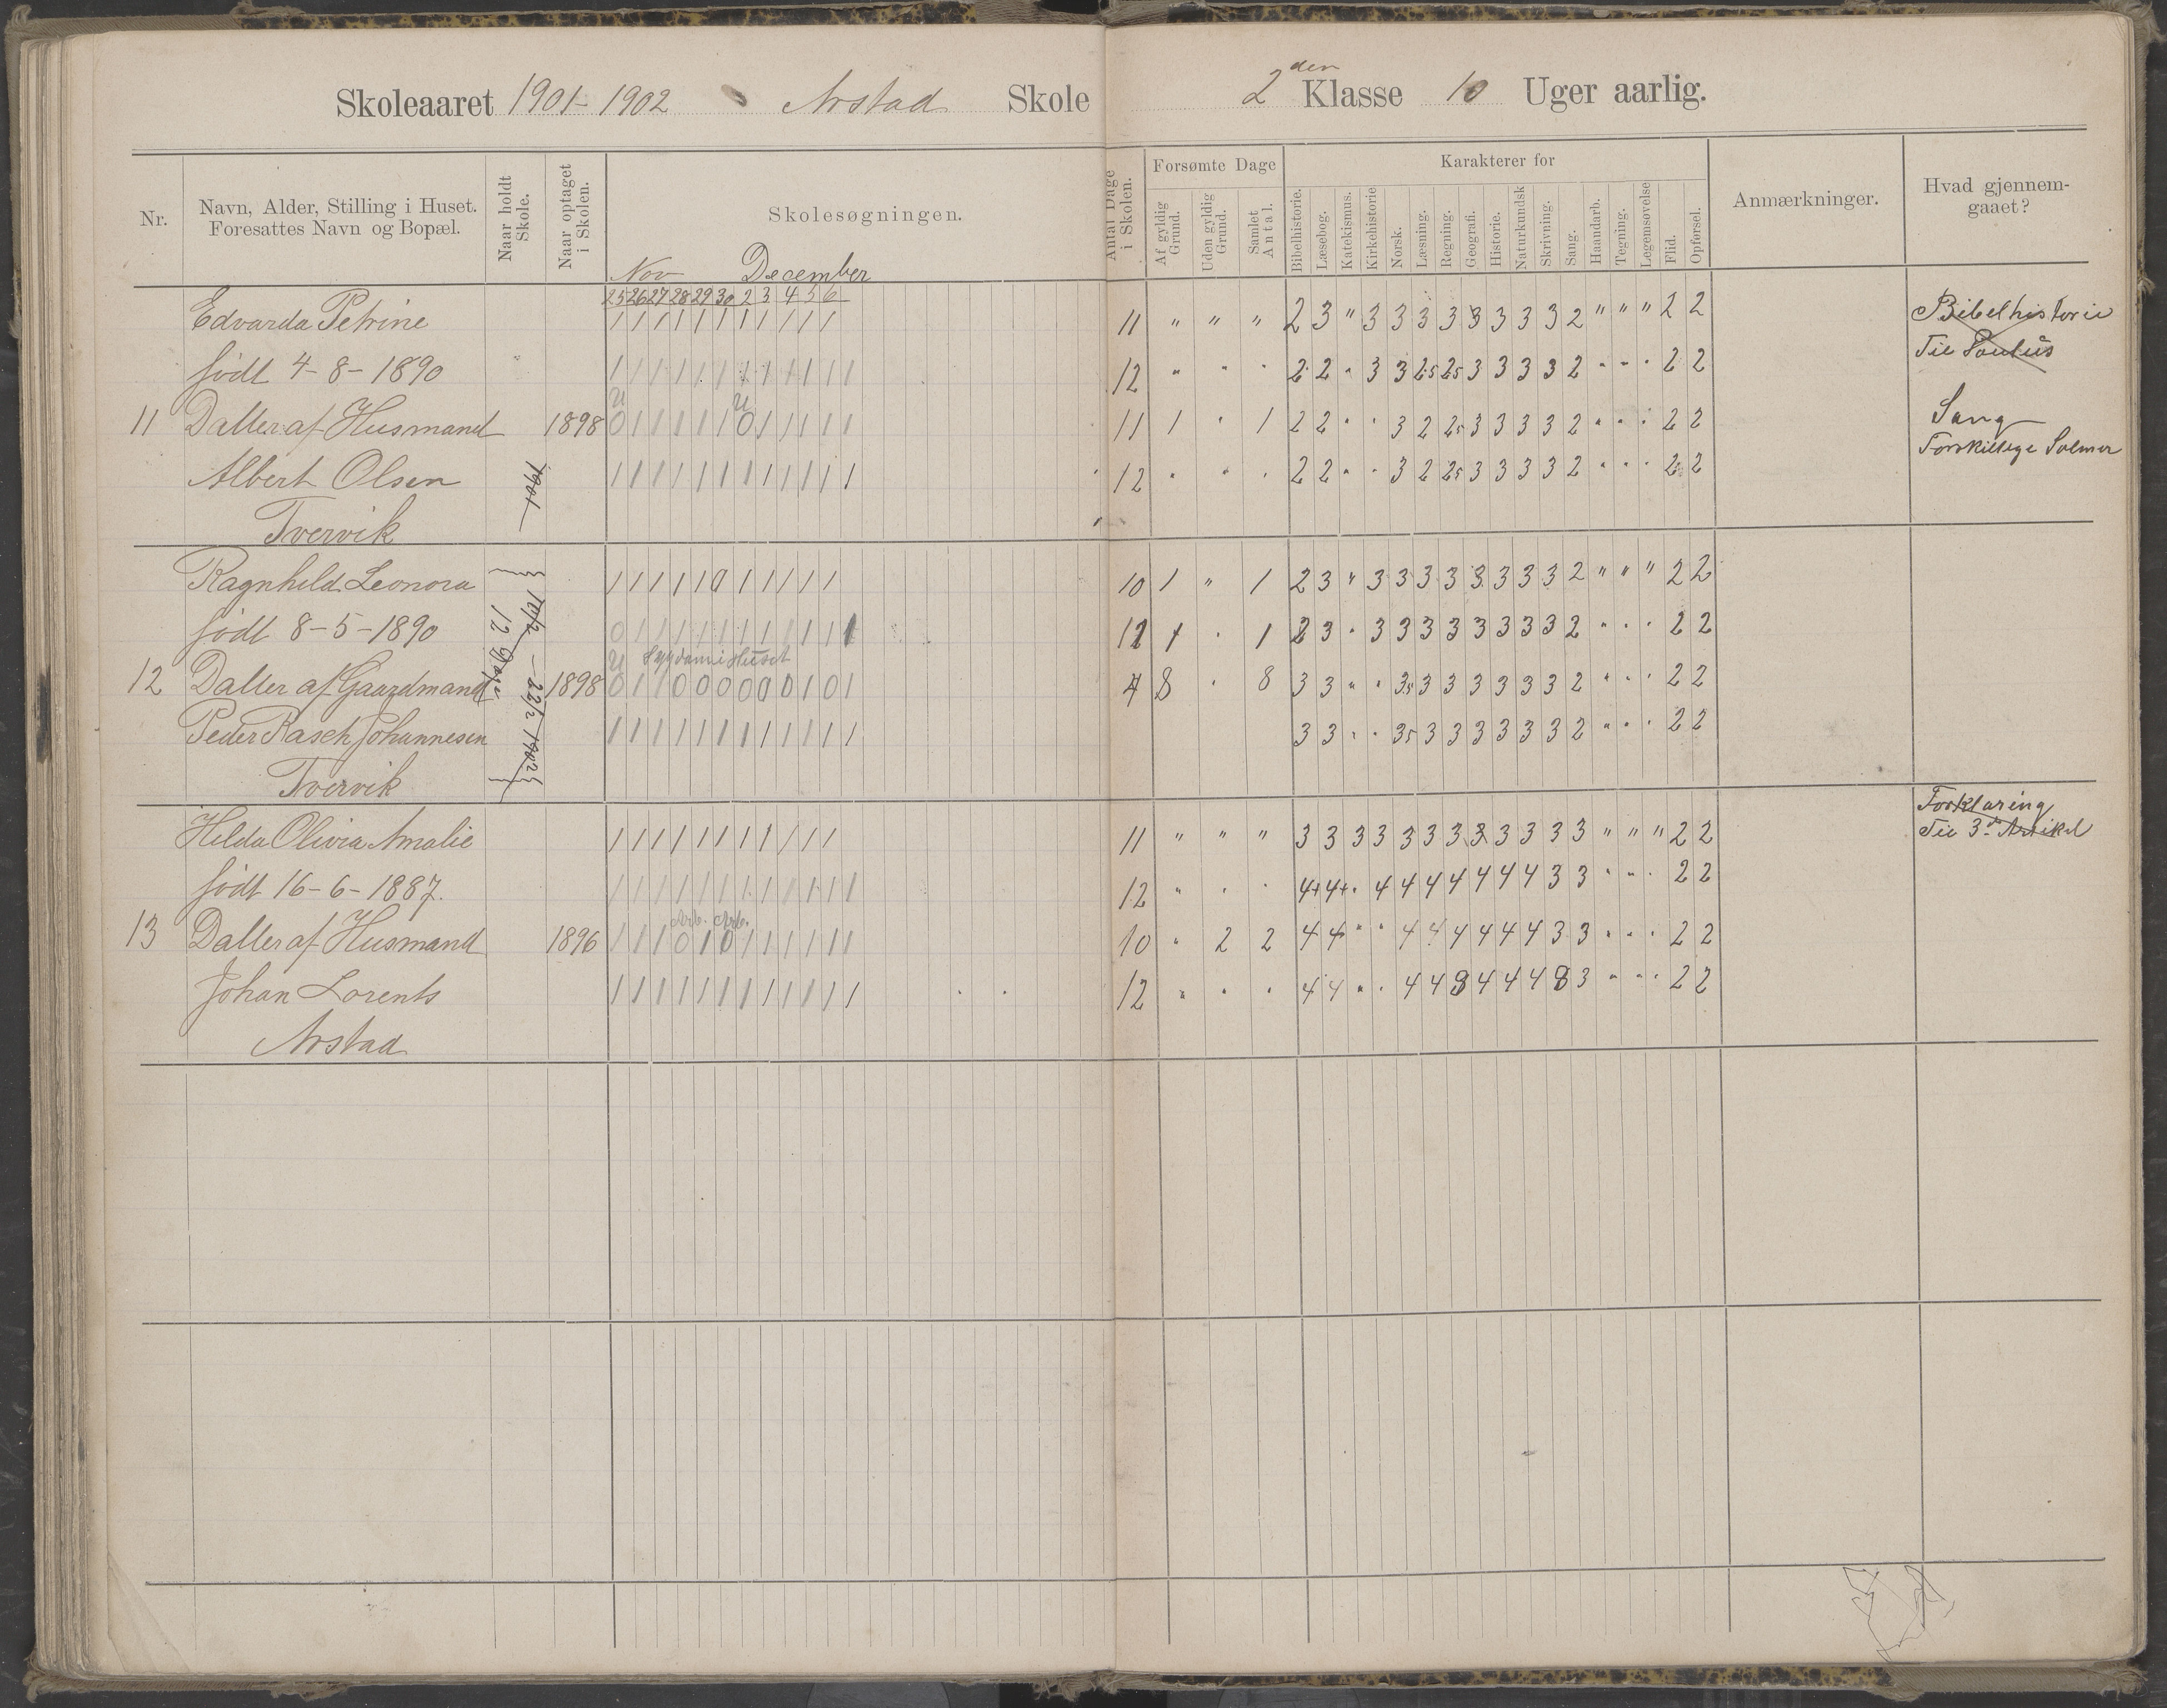 Skoleaaret 1901-1902 Arstad Skole 2den Klasse 10 Uger aarlig.
Nr.
Navn, Alder, Stilling i Huset.
Foresattes Navn og Bopæl.
Naar holdt
Skole.
Naar optaget
i Skolen.
Skolesøgningen.
Antal Dage
i Skolen.
Forsømte Dage
Af gyldig
Grund.
Uden gyldig
Grund.
Samlet
Antal.
Karakterer for
Bibelhistorie.
Læsebog.
Katekismus.
Kirkehistorie
Norsk.
Læsning.
Regning.
Geografi.
Historie.
Naturkundsk
Skrivning.
Sang.
Haandarb.
Tegning.
Legemsøvelse
Flid.
Opførsel.
Anmærkninger.
Hvad gjennem-
gaaet?
Nov December
25 26 27 28 29 30 2 3 4 5 6
Edvarda Petrine 1 1 1 1 1 1 1 1 1 1 1 11 " " " 2 3 " 3 3 3 3 3 3 3 3 2 " " " 2 2 Bibelhistorie
født 4-8-1890 1 1 1 1 1 1 1 1 1 1 1 1 12 " " " 2 2 " 3 3 25 25 3 3 3 3 2 " " " 2 2 Til Paulus
U U
11 Datter af Husmand 1898 0 1 1 1 1 1 0 1 1 1 1 1 11 1 " 1 2 2 " " 3 2 25 3 3 3 3 2 " " " 2 2 Sang
Albert Olsen 1901 1 1 1 1 1 1 1 1 1 1 1 1 12 " " 2 2 " " 3 2 25 3 3 3 3 2 " " " 2 2 Forskillige Salmer
Tvervik
Ragnhild Leonora 1 1 1 1 1 0 1 1 1 1 1 10 1 " 1 2 3 " 3 3 3 3 3 3 3 3 2 " " " 2 2
født 8-5-1890 0 1 1 1 1 1 1 1 1 1 1 1 11 1 " 1 2 3 " 3 3 3 3 3 3 3 3 2 " " " 2 2
12 Dage
10/2 - 22/2 1902
U Sygdom i Huset
12 Datter af Gaardmand 1898 0 1 1 0 0 0 0 0 0 1 0 1 4 8 " 8 3 3 " " 3,5 3 3 3 3 3 3 2 " " " 2 2
Peder Rasch Johannesen 1 1 1 1 1 1 1 1 1 1 1 1 3 3 " " 35 3 3 3 3 3 3 2 " " " 2 2
Tvervik
Hilda Olivia Amalie 1 1 1 1 1 1 1 1 1 1 1 11 " " " 3 3 3 3 3 3 3 3 3 3 3 3 " " " 2 2 Forklaring
Til 3die Artikel
født 16-6-1887. 1 1 1 1 1 1 1 1 1 1 1 1 12 " " " 4+ 4+ " 4 4 4 4 4 4 4 3 3 " " " 2 2
Arb. Arb.
13 Datter af Husmand 1896 1 1 1 0 1 0 1 1 1 1 1 1 10 " 2 2 4 4 " " 4 4 4 4 4 4 3 3 " " " 2 2
Johan Lorents 1 1 1 1 1 1 1 1 1 1 1 1 12 " " " 4 4 " " 4 4 3 4 4 4 3 3 " " " 2 2
Arstad